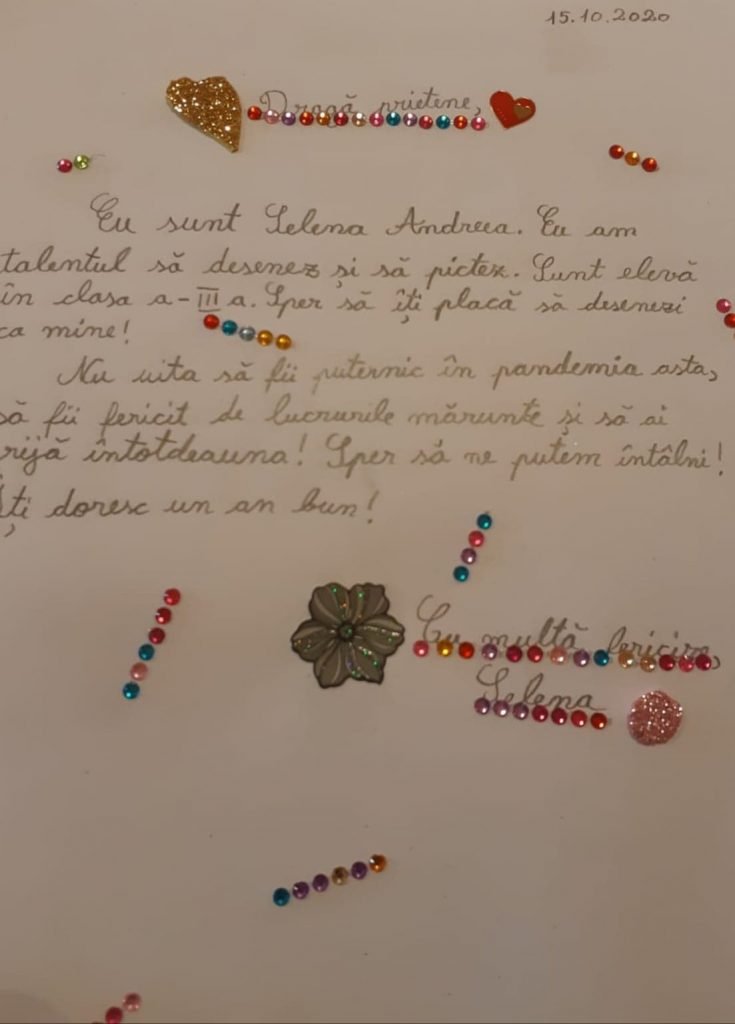 15.10.2020
Dragă prietene,
Eu sunt Selena Andreea. Eu am
talentul să desenez și să pictez. Sunt elevă
în clasa a-III a. Sper să îți placă să desenezi
ca mine!
Nu uita să fii puternic în pandemia asta,
să fii fericit de lucrurile mărunte și să ai
rijă întotdeauna! Sper să ne putem întâlni!
Îți doresc un an bun!
Cu multă fericire,
Selena